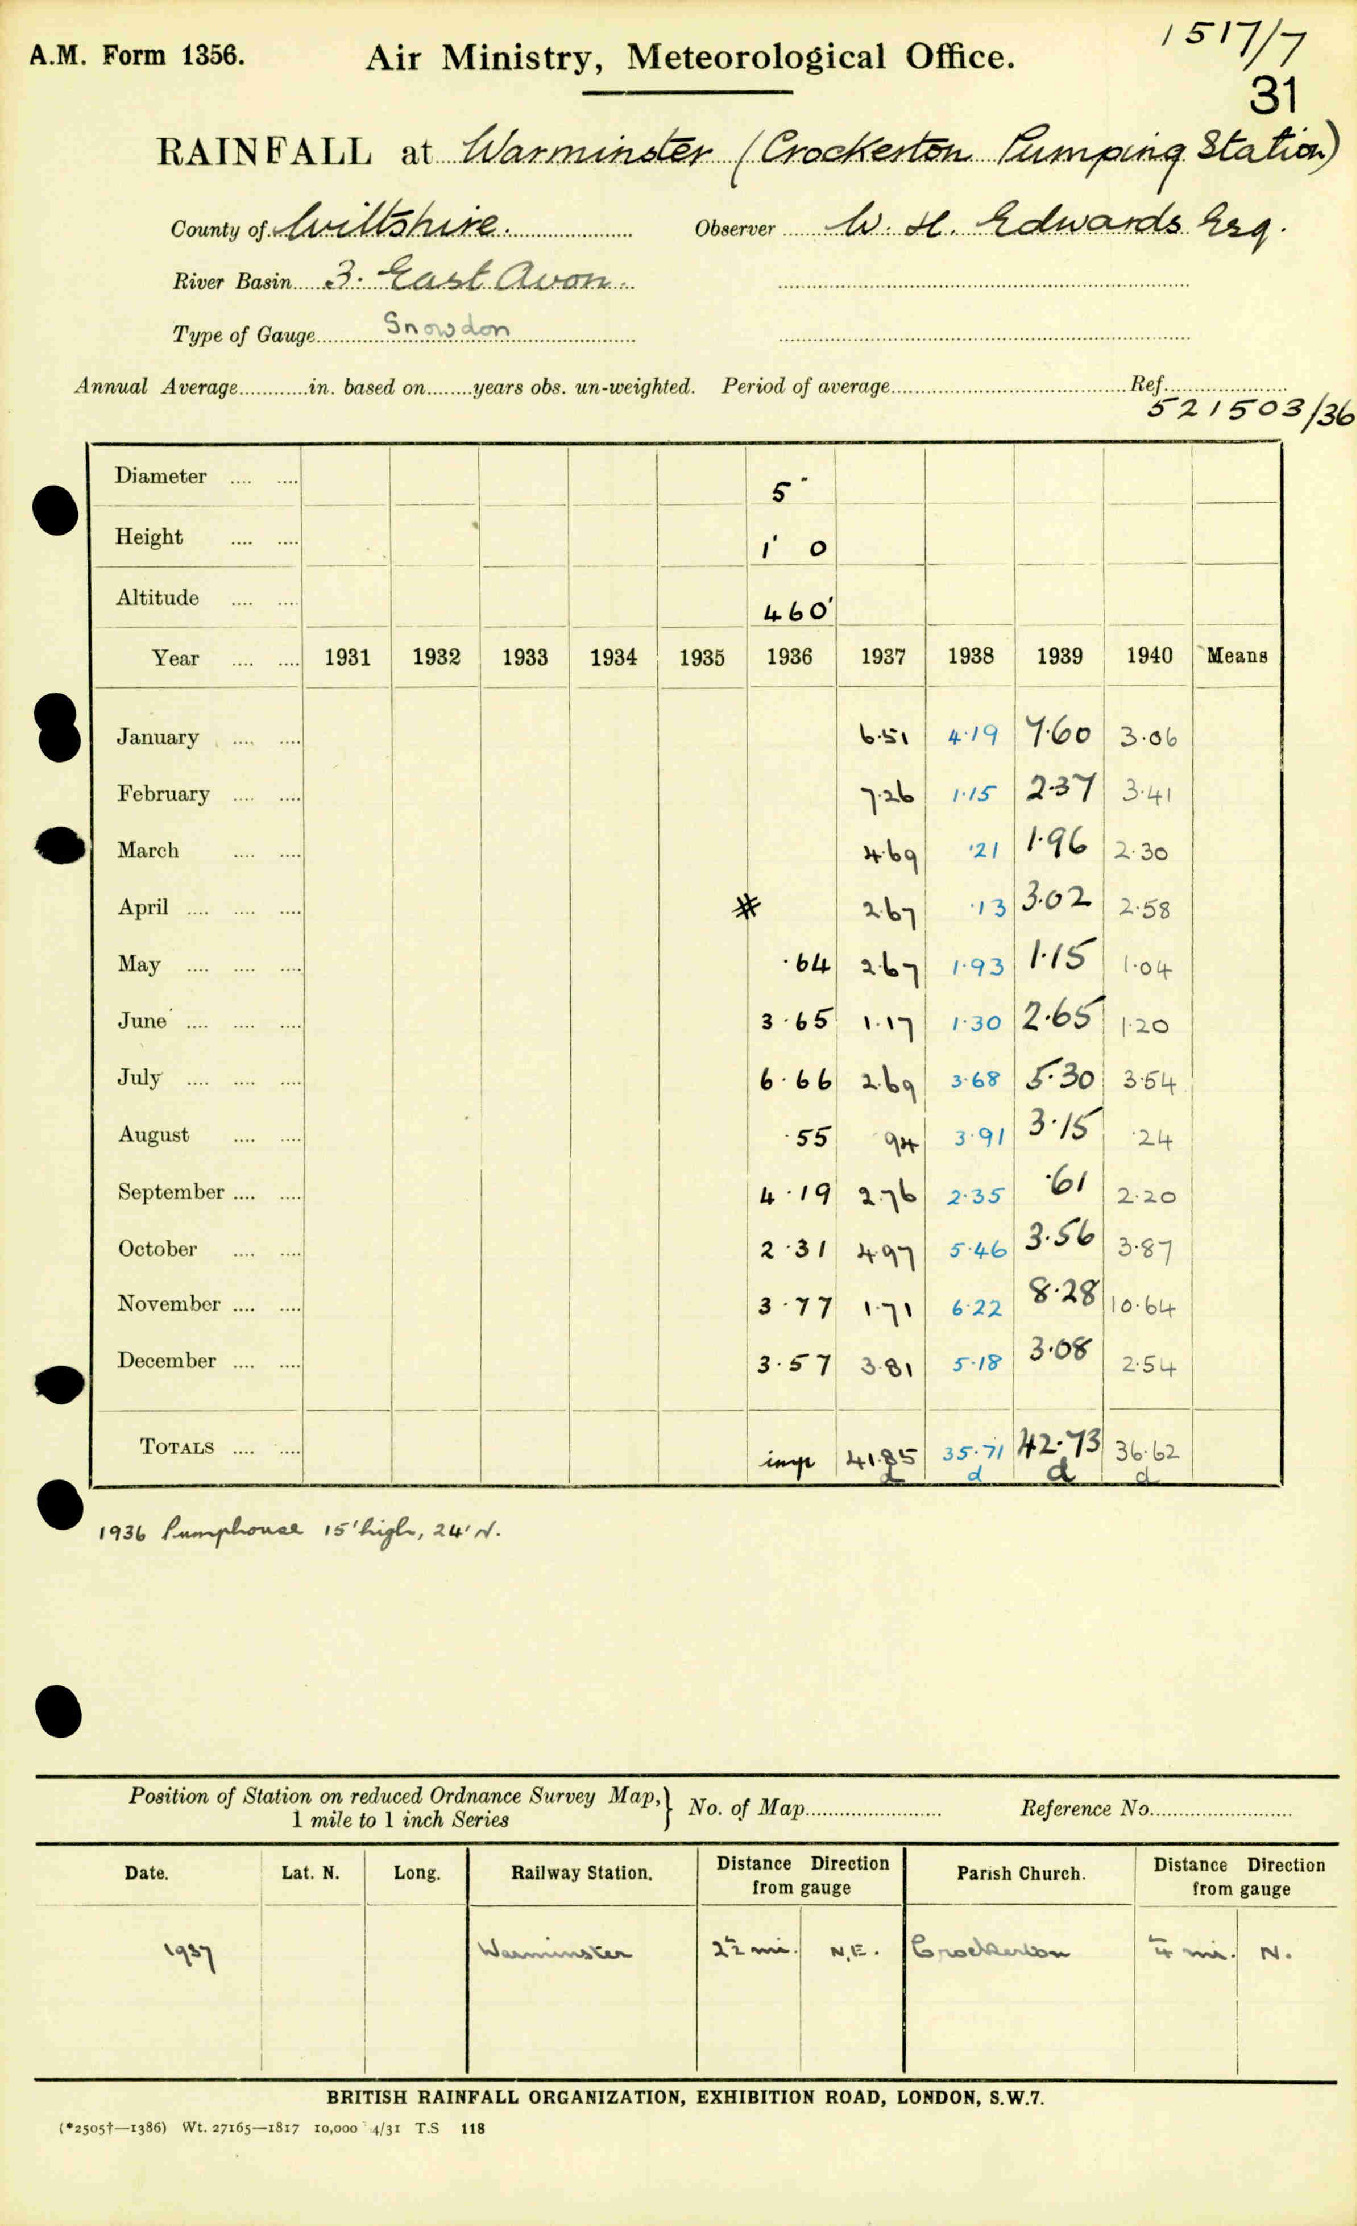 1517/7
A.M. Form 1356. Air Ministry, Meteorological Office.
31
RAINFALL at Warminster (Crockerton Pumping Station)
County of Wiltshire. Observer W. H. Edwards Esq.
River Basin 3. East Avon.
Type of Gauge Snowdon
Annual Average in. based on years obs. un-weighted. Period of average Ref.
521503/36
Diameter 5"
Height 1' 0
Altitude 460'
Year 1931 1932 1933 1934 1935 1936 1937 1938 1939 1940 Means
January 6.51 4.19 7.60 3.06
February 7.26 1.15 2.37 3.41
March 4.69 .21 1.96 2.30
April # 2.67 .13 3.02 2.58
May .64 2.67 1.93 1.15 1.04
June 3.65 1.17 1.30 2.65 1.20
July 6.66 2.69 3.68 5.30 3.54
August .55 .94 3.91 3.15 .24
September 4.19 2.76 2.35 .61 2.20
October 2.31 4.97 5.46 3.56 3.87
November 3.77 1.71 6.22 8.28 10.64
December 3.57 3.81 5.18 3.08 2.54
TOTALS imp 41.85 35.71 42.73 36.62
d d d d
1936 Pumphouse 15' high, 24' N.
Position of Station on reduced Ordnance Survey Map,} No. of Map Reference No.
1 mile to 1 inch Series
Date. Lat. N. Long. Railway Station. Distance Direction from gauge Parish Church. Distance Direction from gauge
1937 Warminster mi. N.E. Crockerton mi. N.
BRITISH RAINFALL ORGANIZATION, EXHIBITION ROAD, LONDON, S.W.7.
(*2505†—1386) Wt. 27165—1817 10,000 4/31 T.S 118